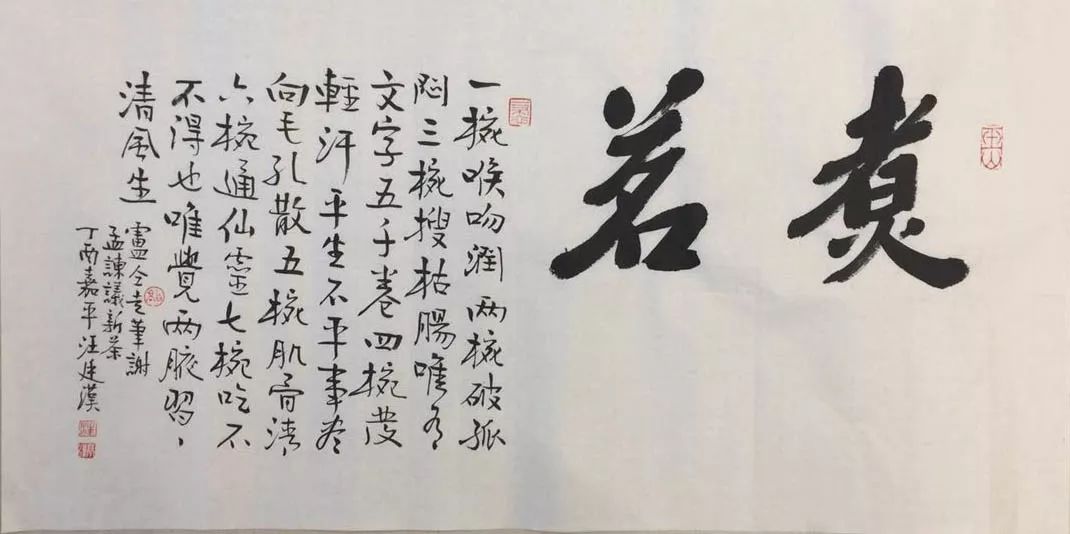 煑茗
一椀喉吻潤两椀破孤
悶三椀搜枯腸唯有
文字五千卷四椀發
輕汗平生不平事盡
向毛孔散五椀肌骨清
六椀通仙靈七椀吃不
不得也唯覺两腋習、
清風生
盧仝走筆謝
孟諫議新茶
丁酉嘉平汪廷漢